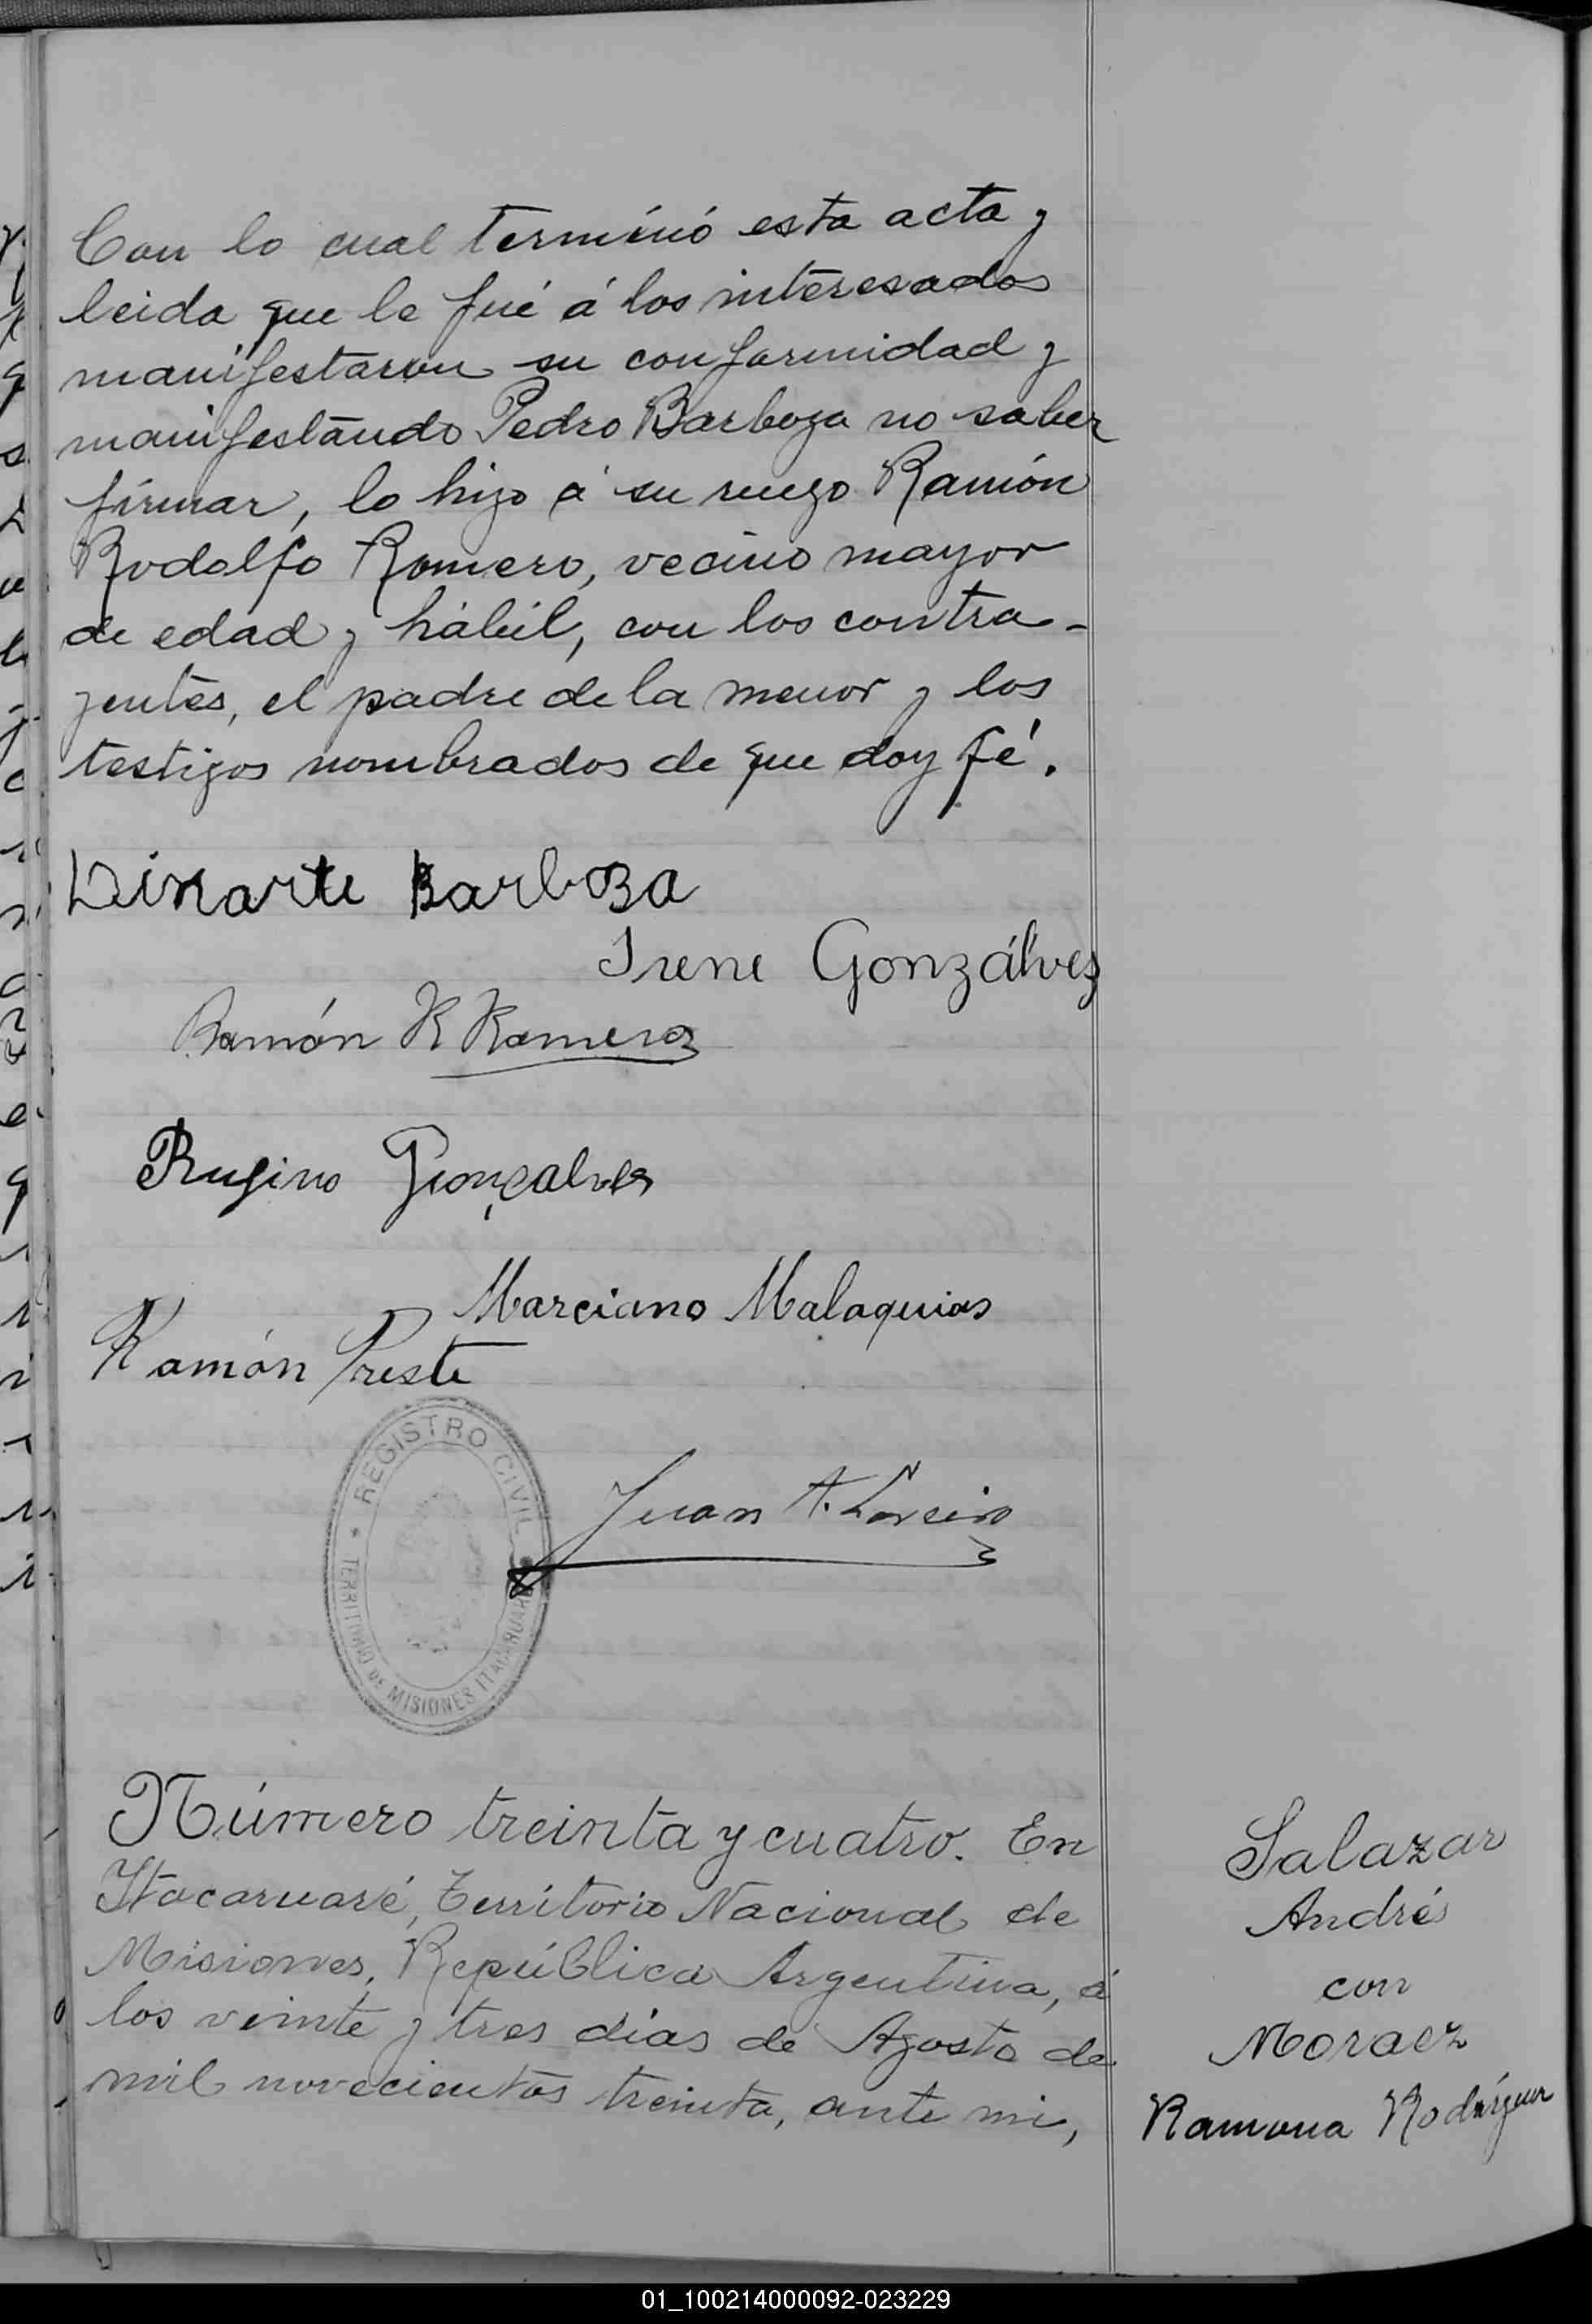 Con lo cual terminó esta acta y
leida que le fué á los interesados
manifestaron su conformidad y
manifestando Pedro Barboza no saber
firmar, lo hizo á su ruego Ramón
Rodolfo Romero, vecino mayor
de edad y hábil, con los contra-
yentes, el padre de la menor y los
testigos nombrados de que doy fé.
Dinarte Barboza
Irene Gonzálves
Ramón R Romero
Rufino Gonçalves
Marciano Malaquias
Ramón Preste
REGISTRO CIVIL
TERRITORIO DE MISIONES ITACARUARE
Juan A.
Número treinta y cuatro. En
Itacaruaré, Territorio Nacional de
Misiones, República Argentina, á
los veinte y tres días de Agosto de
mil novecientos treinta, ante mi,
Salazar
Andrés
con
Moraez
Ramona Rodríguez
01_100214000092-023229